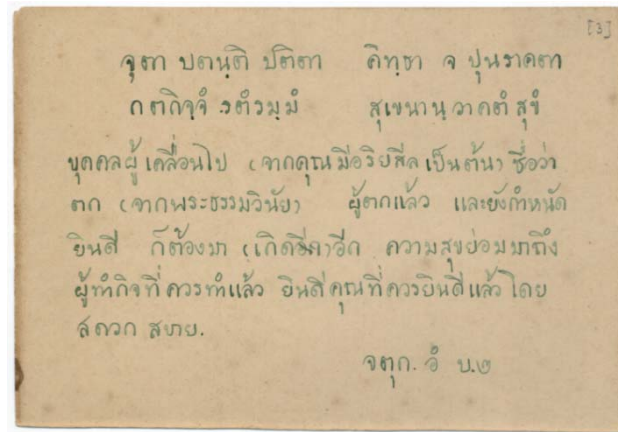 [3]
จุตา ปตนฺติ ปติตา คิทฺธา จ ปุนราคตา
กตกิจฺจํ รตํรมฺมํ สุเขนานฺวาคตํ สุขํ
บุคคลผู้เคลื่อนไป (จากคุณมีอริยสีลเป็นต้น) ชื่อว่า
ตก (จากพระธรรมวินัย) ผู้ตกแล้ว และยังกำหนัด
ยินดี ก็ต้องมา (เกิดอีก) อีก ความสุขย่อมมาถึง
ผู้ทำกิจที่ควรทำแล้ว ยินดีคุณที่ควรยินดีแล้วโดย
สดวก สบาย.
จตุก. อํ ๒๑.๒